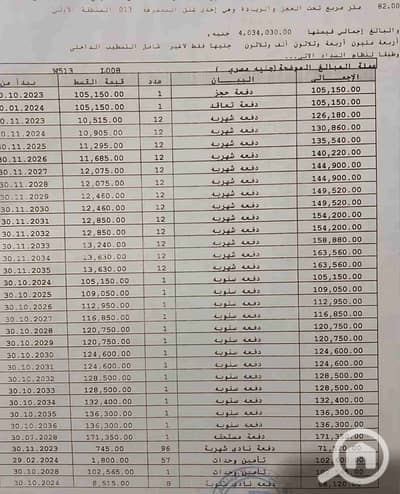 82.00 متر مربع تحت العجز والزيادة وهي إحدى غرف المعرفة 013 المنطقة الأولى
والبالغ إجمالي قيمتها 4,034,030.00 جنيه,
أربعة مليون أربعة وثلاثون ألف وثلاثون جنيها فقط لاغير شامل التشطيب الداخلي
وطبقا لنظام السداد الآتي...
(جنيه مصري) W513 L008
الإجمالي البيان عدد قيمة القسط يبدأ من
105,150.00 دفعة حجز 1 105,150.00 0.10.2023
105,150.00 دفعة تعاقد 1 105,150.00 0.01.2024
126,180.00 دفعة شهرية 12 10,515.00 30.11.2023
130,860.00 دفعة شهرية 12 10,905.00 0.11.2024
135,540.00 دفعة شهرية 12 11,295.00 30.11.2025
140,220.00 دفعة شهرية 12 11,685.00 30.11.2026
144,900.00 دفعة شهرية 12 12,075.00 30.11.2027
144,900.00 دفعة شهرية 12 12,075.00 30.11.2028
149,520.00 دفعة شهرية 12 12,460.00 30.11.2029
149,520.00 دفعة شهرية 12 12,460.00 30.11.2030
154,200.00 دفعة شهرية 12 12,850.00 30.11.2031
154,200.00 دفعة شهرية 12 12,850.00 30.11.2032
158,880.00 دفعة شهرية 12 13,240.00 30.11.2033
163,560.00 دفعة شهرية 12 13,630.00 30.11.2034
163,560.00 دفعة شهرية 12 13,630.00 30.11.2035
105,150.00 دفعة سنوية 1 105,150.00 30.10.2024
109,050.00 دفعة سنوية 1 109,050.00 30.10.2025
112,950.00 دفعة سنوية 1 112,950.00 30.10.2026
116,850.00 دفعة سنوية 1 116,850.00 30.10.2027
120,750.00 دفعة سنوية 1 120,750.00 30.10.2028
120,750.00 دفعة سنوية 1 120,750.00 30.10.2029
124,600.00 دفعة سنوية 1 124,600.00 30.10.2030
124,600.00 دفعة سنوية 1 124,600.00 30.10.2031
128,500.00 دفعة سنوية 1 128,500.00 30.10.2032
128,500.00 دفعة سنوية 1 128,500.00 30.10.2033
132,400.00 دفعة سنوية 1 132,400.00 30.10.2034
136,300.00 دفعة سنوية 1 136,300.00 30.10.2035
136,300.00 دفعة سنوية 1 136,300.00 30.10.2036
دفعة 1 171,350.00 30.07.2028
دفعة نادي شهرية 96 745.00 30.11.2023
تأمين وحدات 57 1,800.00 29.02.2024
تأمين وحدات 1 102,565.00 30.10.2028
8 8,515.00 30.10.2024